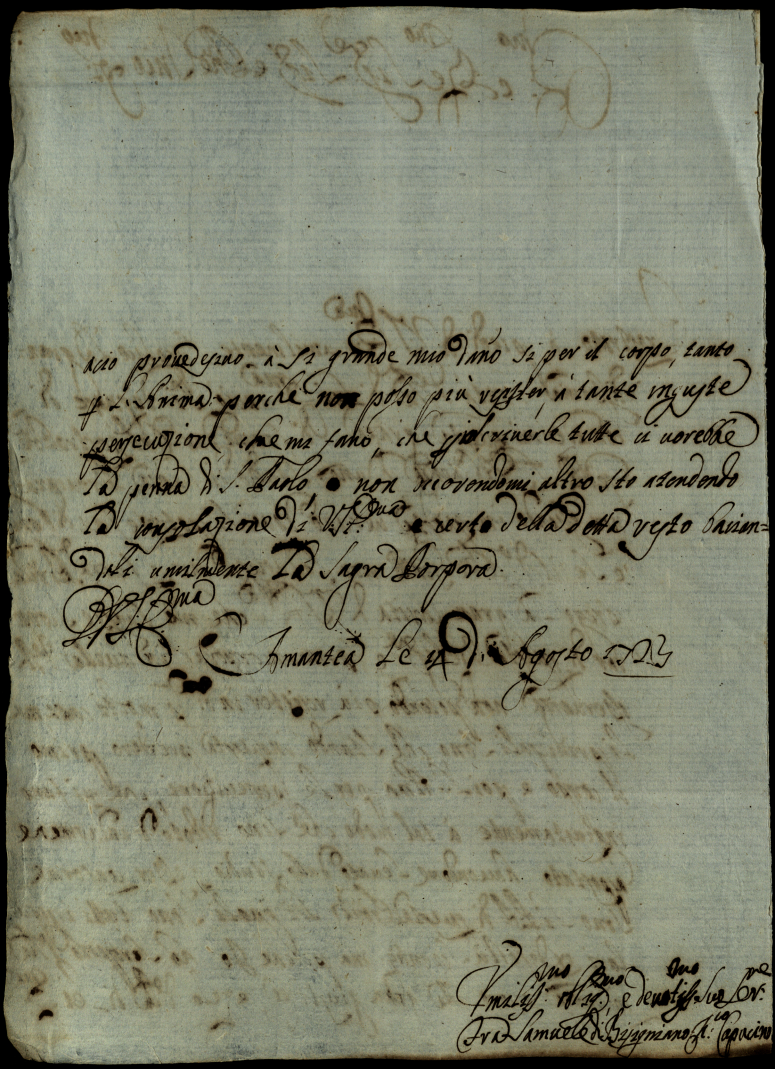 acio provedino à si grande mio dano si per il corpo, tanto
p l'Anima perche non posso più resister à tante ingiuste
persecuzione che mi fano, che p scriverle tutte ci vorebbe
la penna di S. Paolo e non occorendomi altro sto atendendo
la consolazione di V. Em.za e certo della detta resto bacian=
doli umilmente la Sagra Porpora.
Amantea le 14 di Agosto 1723
Umiliss.mo oblig.mo, e devotiss.mo Suo Ser.re
Fra Samuele di Bisignano Capocino